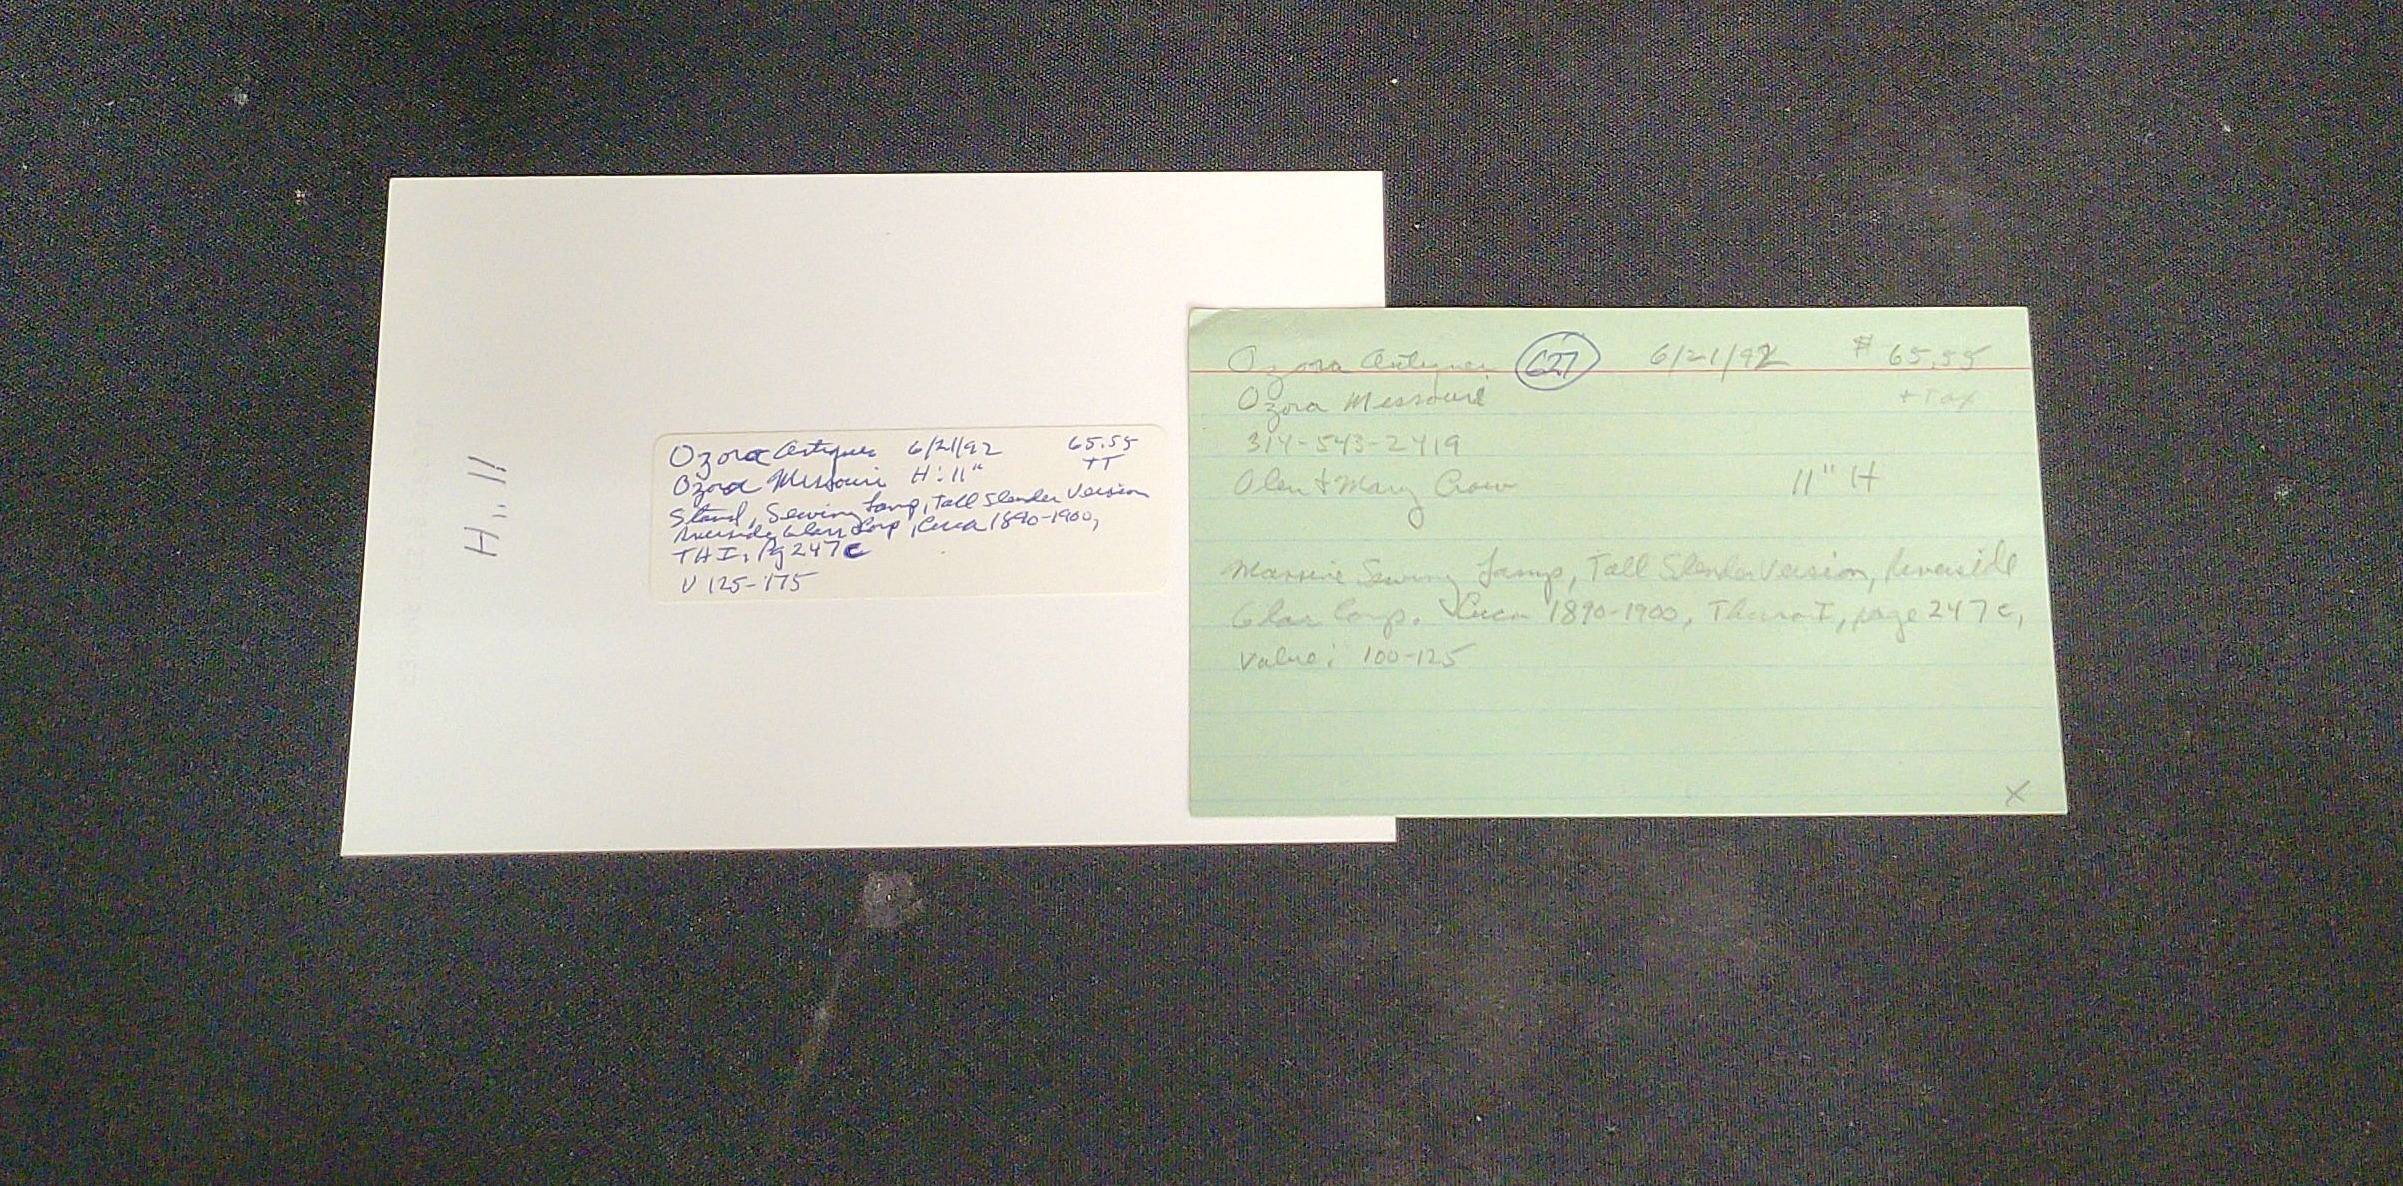 H: 11
Ozora Antiques 6/21/92 65.55
+T
Ozora Missouri H: 11"
Stand, Sewing Lamp, Tall Slender Version
Riverside Glass Comp, Circa 1890-1900,
TH I, Pg 247 c
V 125-175
Ozora Antiques 627 6/21/92 $65.55
Ozora Missouri + Tax
314-543-2419
& Mary Crow 11" H
Massive Sewing Lamp, Tall Slender Version, Riverside
Glass Comp. Circa 1890-1900, Thuro I, page 247 c,
Value: 100-125
X